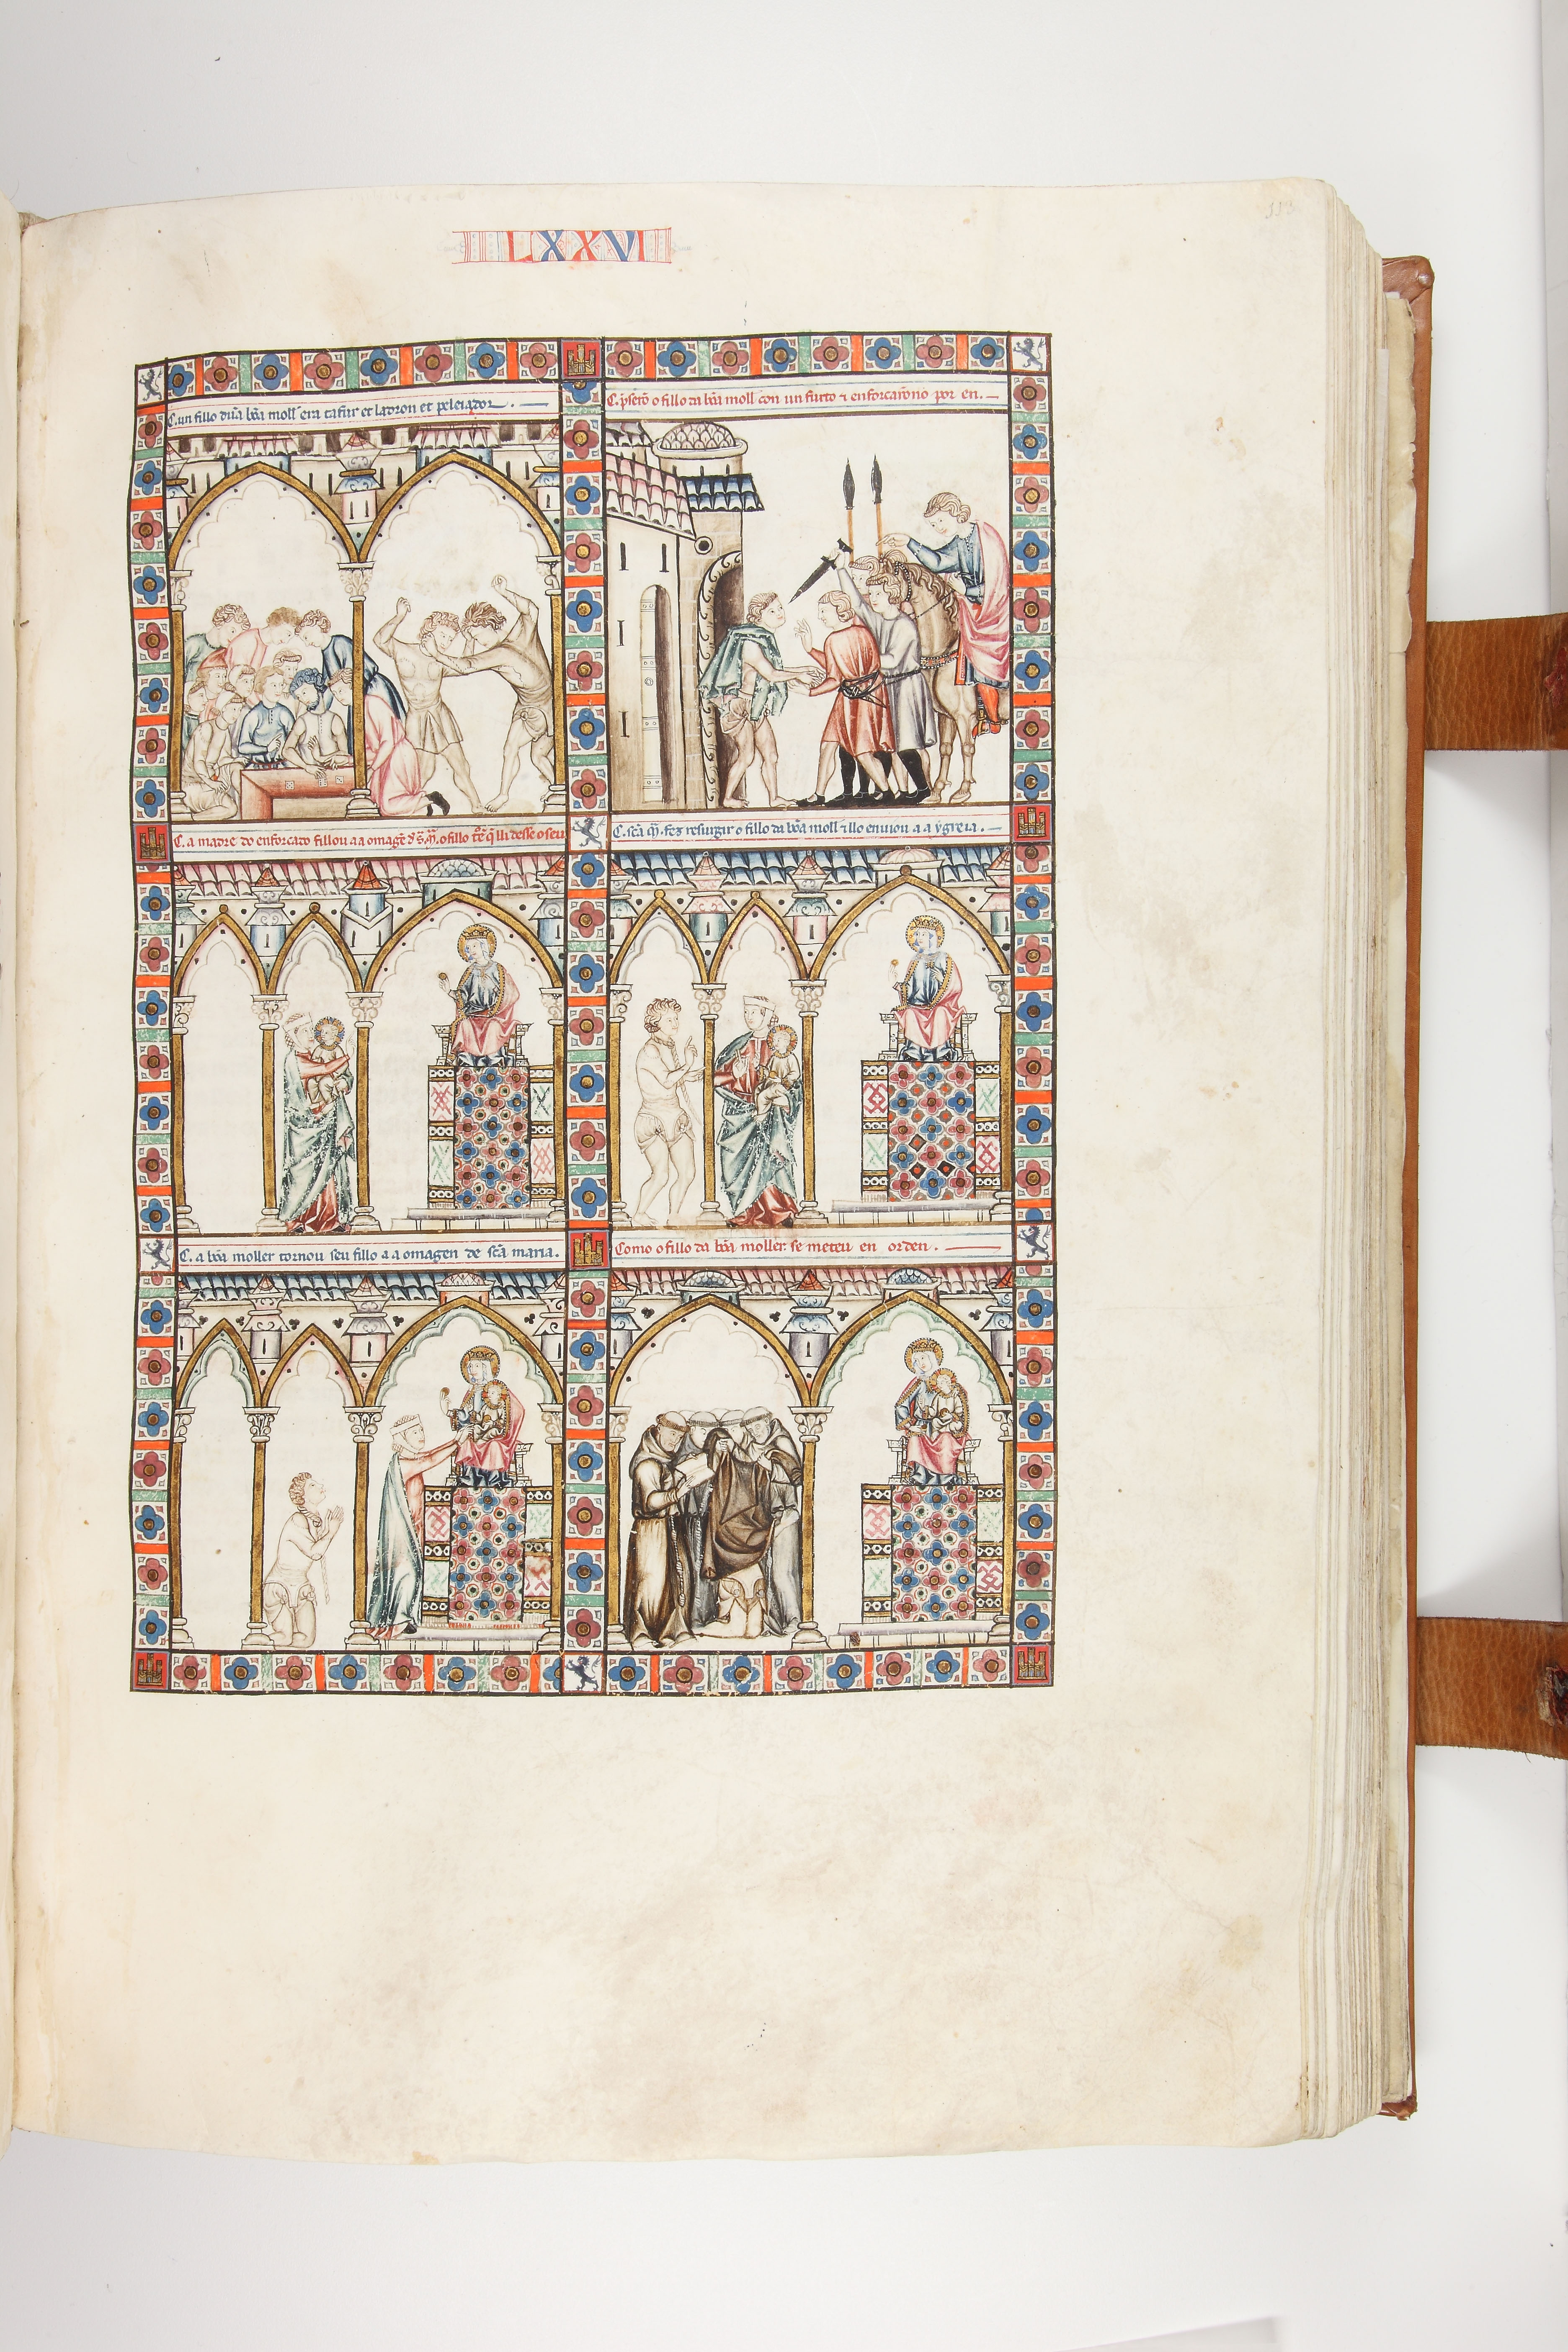 LXXVI
C. un fillo dũa bõa moll' era tafur et ladron et peleiador.
C. p̃serõ o fillo da bõa moll' con un furto ⁊ enforcarõno por en.
C. a madre do enforcado fillou aa omagẽ d' S. M. o fillo tẽ q̃ lli desse o seu
C. scã M. fez resurgir o fillo da bõa moll' ⁊ llo enviou aa ygreia.
C. a bõa moller tornou seu fillo aa omagen de scã maria.
Como o fillo da bõa moller se meteu en orden.